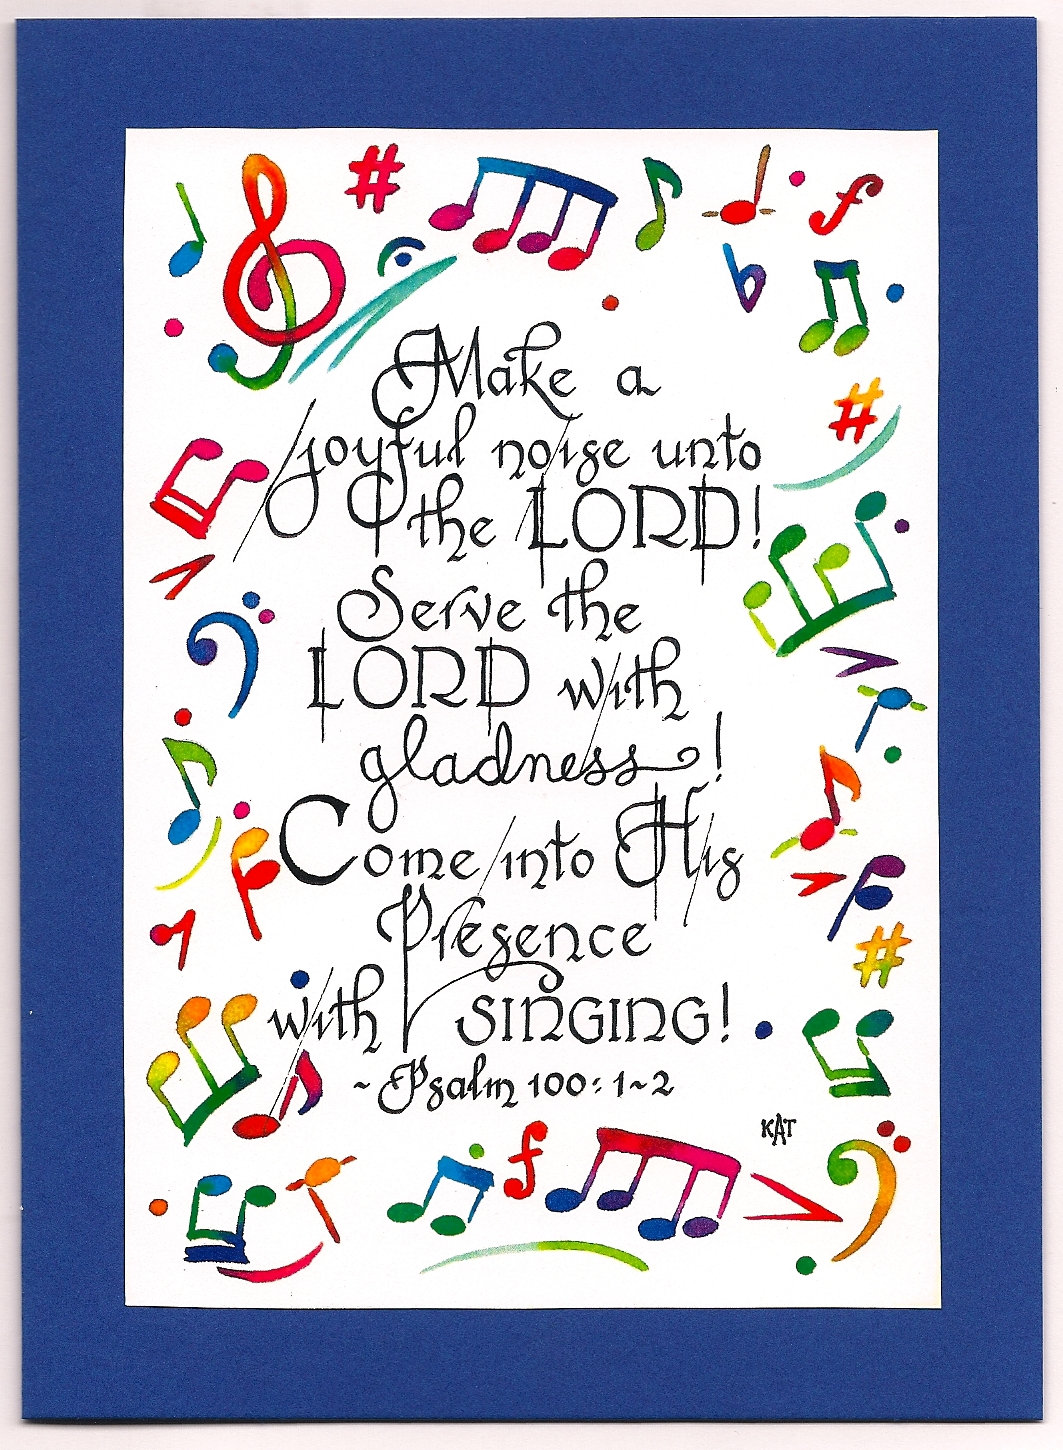 Make a
joyful noise unto
the LORD!
Serve the
LORD with
gladness!
Come into His
Presence
with SINGING!
~ Psalm 100: 1~2
KAT